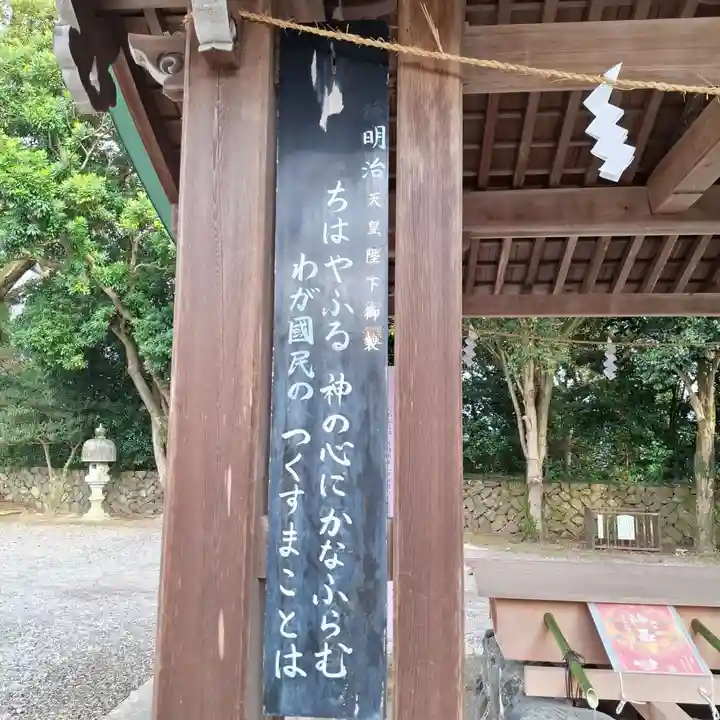 明治天皇陛下御製
ちはやふる 神の心にかなふらむ
わが國民の つくすまことは